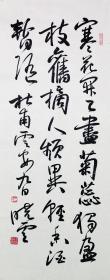 寒花開已盡菊蕊獨盈
枝舊摘人頻異輕香酒
暫隨 杜甫雲安九日 曉雲